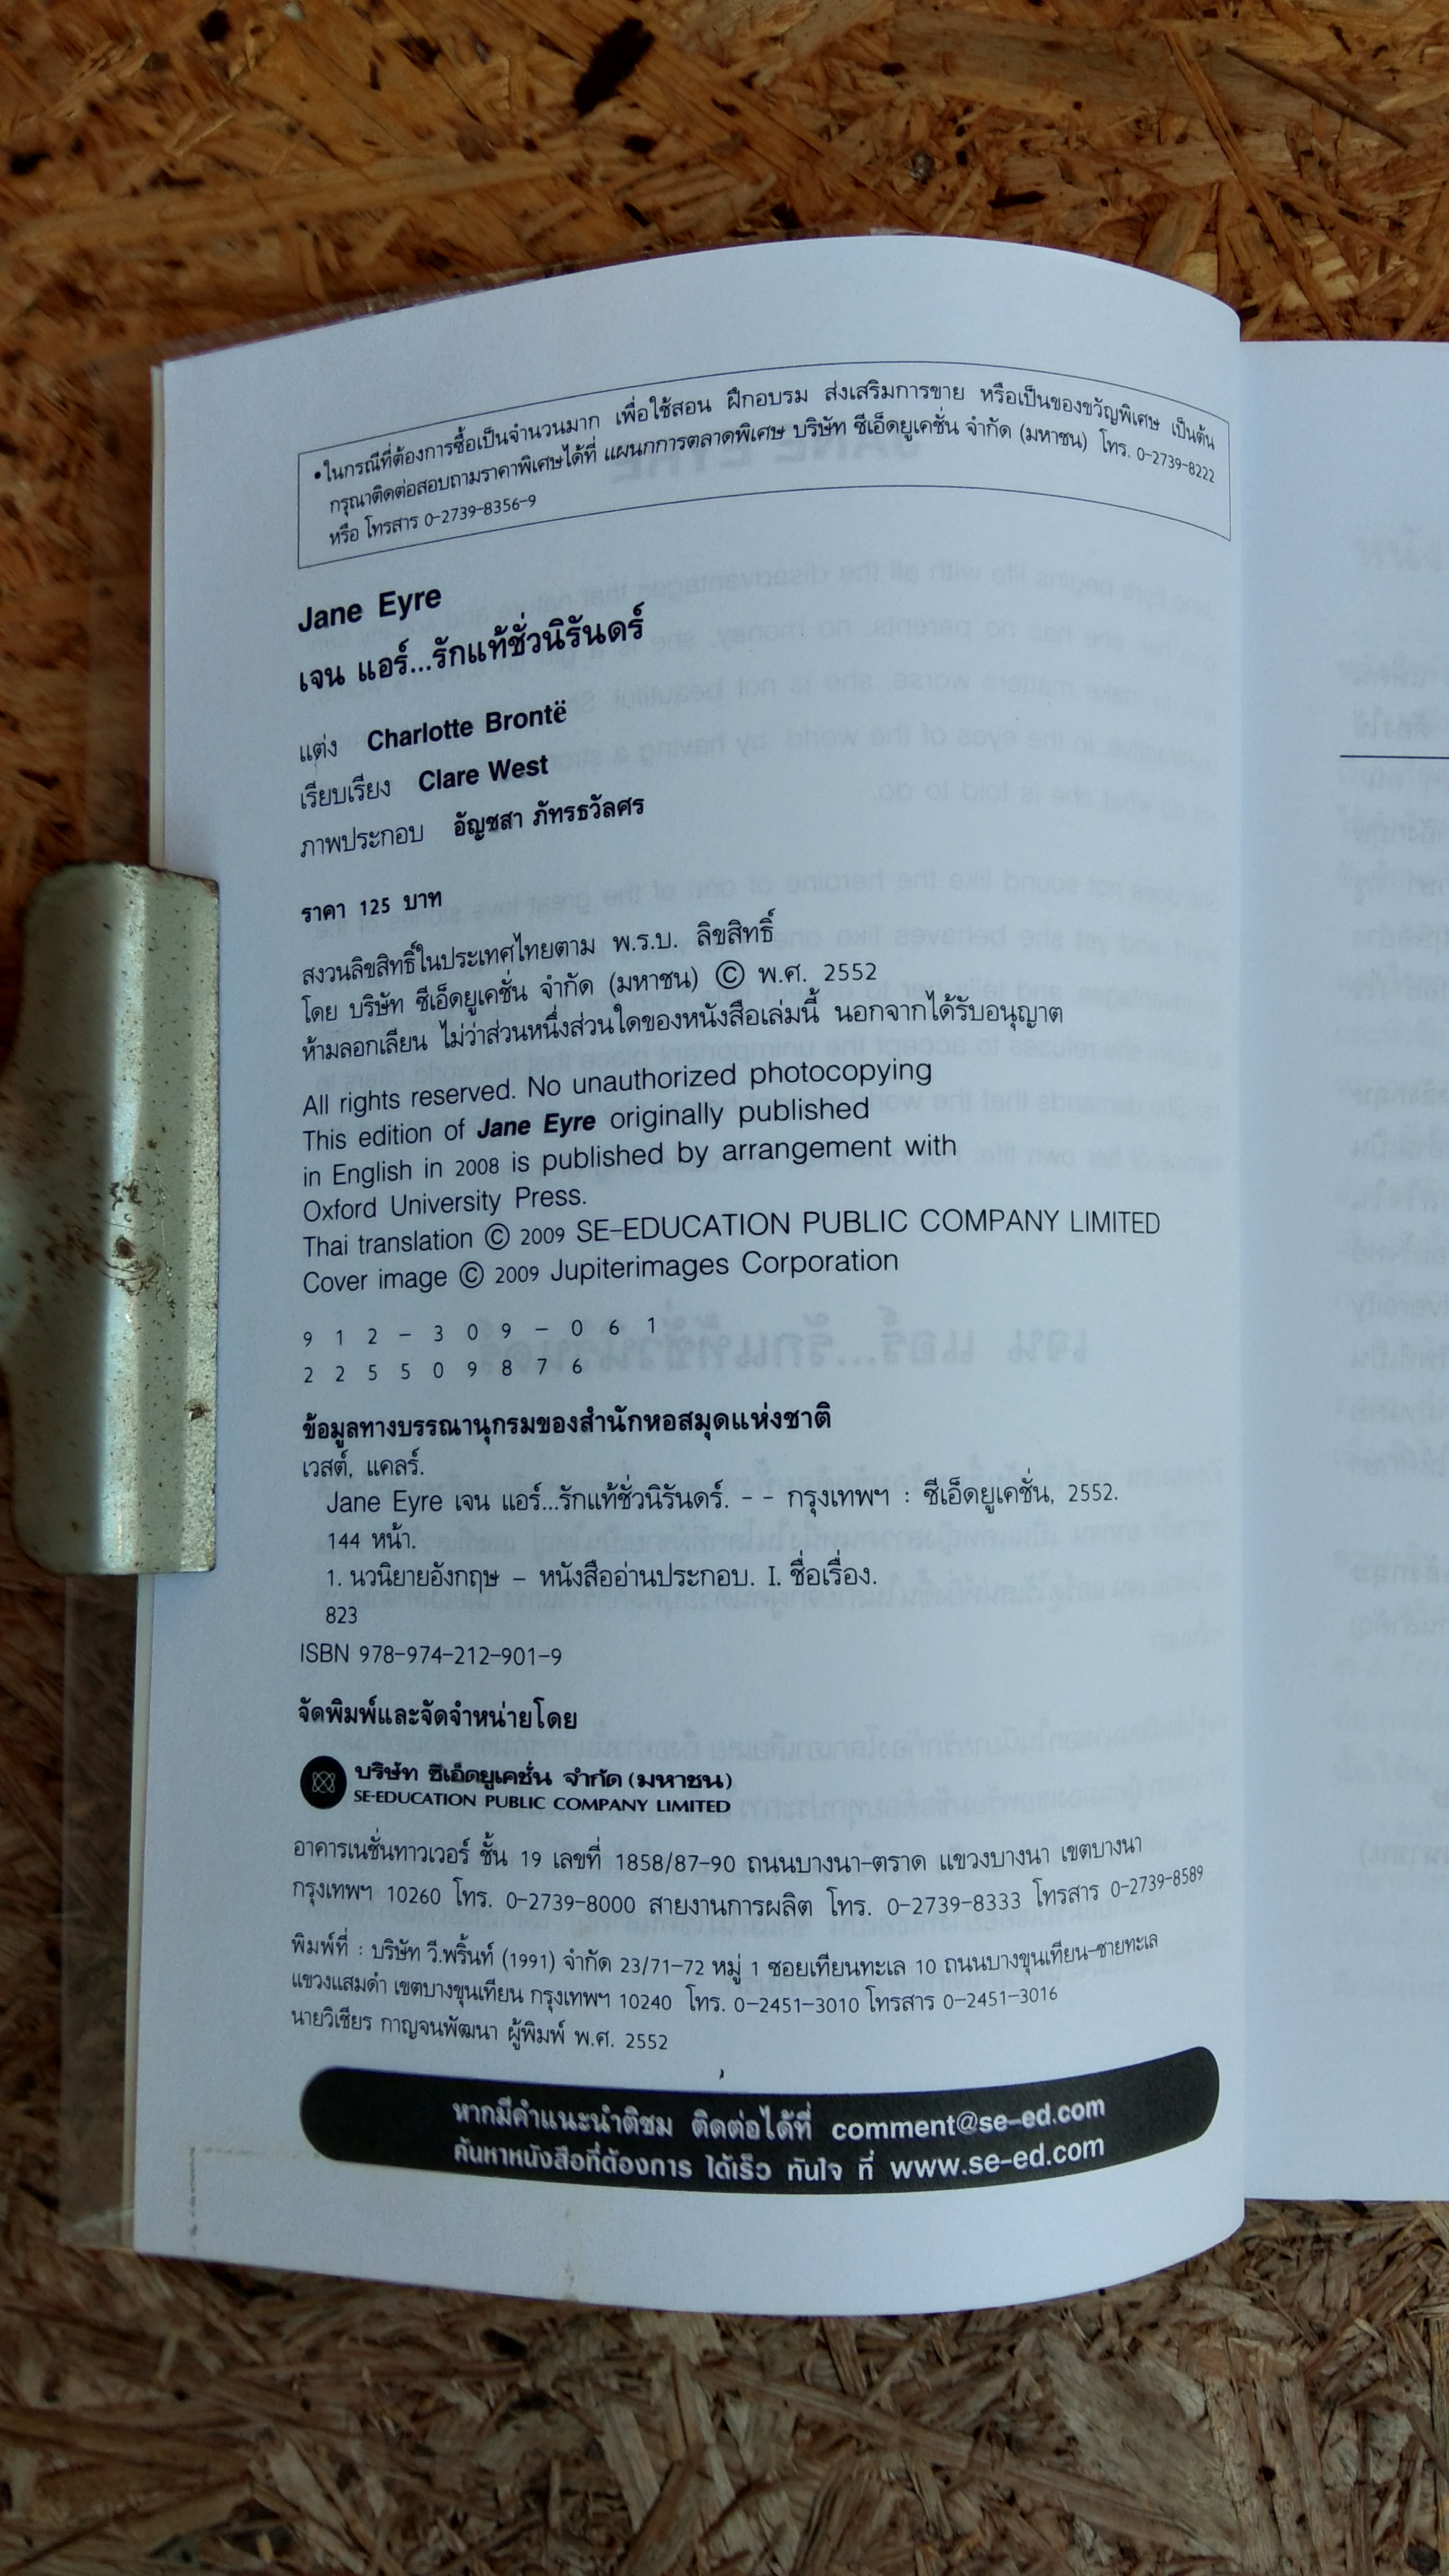 •ในกรณีที่ต้องการซื้อเป็นจำนวนมาก เพื่อใช้สอน ฝึกอบรม ส่งเสริมการขาย หรือเป็นของขวัญพิเศษ เป็นต้น
กรุณาติดต่อสอบถามราคาพิเศษได้ที่ แผนกการตลาดพิเศษ บริษัท ซีเอ็ดยูเคชั่น จำกัด (มหาชน) โทร. 0-2739-8222
หรือ โทรสาร 0-2739-8356-9
Jane Eyre
เจน แอร์...รักแท้ชั่วนิรันดร์
แต่ง Charlotte Brontë
เรียบเรียง Clare West
ภาพประกอบ อัญชสา ภัทรธวัลศร
ราคา 125 บาท
สงวนลิขสิทธิ์ในประเทศไทยตาม พ.ร.บ. ลิขสิทธิ์
โดย บริษัท ซีเอ็ดยูเคชั่น จำกัด (มหาชน) © พ.ศ. 2552
ห้ามลอกเลียน ไม่ว่าส่วนหนึ่งส่วนใดของหนังสือเล่มนี้ นอกจากได้รับอนุญาต
All rights reserved. No unauthorized photocopying
This edition of Jane Eyre originally published
in English in 2008 is published by arrangement with
Oxford University Press.
Thai translation © 2009 SE-EDUCATION PUBLIC COMPANY LIMITED
Cover image © 2009 Jupiterimages Corporation
9 1 2 - 3 0 9 - 0 6 1
2 2 5 5 0 9 8 7 6
ข้อมูลทางบรรณานุกรมของสำนักหอสมุดแห่งชาติ
เวสต์, แคลร์.
Jane Eyre เจน แอร์...รักแท้ชั่วนิรันดร์. - - กรุงเทพฯ : ซีเอ็ดยูเคชั่น, 2552.
144 หน้า.
1. นวนิยายอังกฤษ – หนังสืออ่านประกอบ. I. ชื่อเรื่อง.
823
ISBN 978-974-212-901-9
จัดพิมพ์และจัดจำหน่ายโดย
บริษัท ซีเอ็ดยูเคชั่น จำกัด (มหาชน)
SE-EDUCATION PUBLIC COMPANY LIMITED
อาคารเนชั่นทาวเวอร์ ชั้น 19 เลขที่ 1858/87-90 ถนนบางนา-ตราด แขวงบางนา เขตบางนา
กรุงเทพฯ 10260 โทร. 0-2739-8000 สายงานการผลิต โทร. 0-2739-8333 โทรสาร 0-2739-8589
พิมพ์ที่ : บริษัท วี.พริ้นท์ (1991) จำกัด 23/71-72 หมู่ 1 ซอยเทียนทะเล 10 ถนนบางขุนเทียน-ชายทะเล
แขวงแสมดำ เขตบางขุนเทียน กรุงเทพฯ 10240 โทร. 0-2451-3010 โทรสาร 0-2451-3016
นายวิเชียร กาญจนพัฒนา ผู้พิมพ์ พ.ศ. 2552
หากมีคำแนะนำติชม ติดต่อได้ที่ comment@se-ed.com
ค้นหาหนังสือที่ต้องการ ได้เร็ว ทันใจ ที่ www.se-ed.com